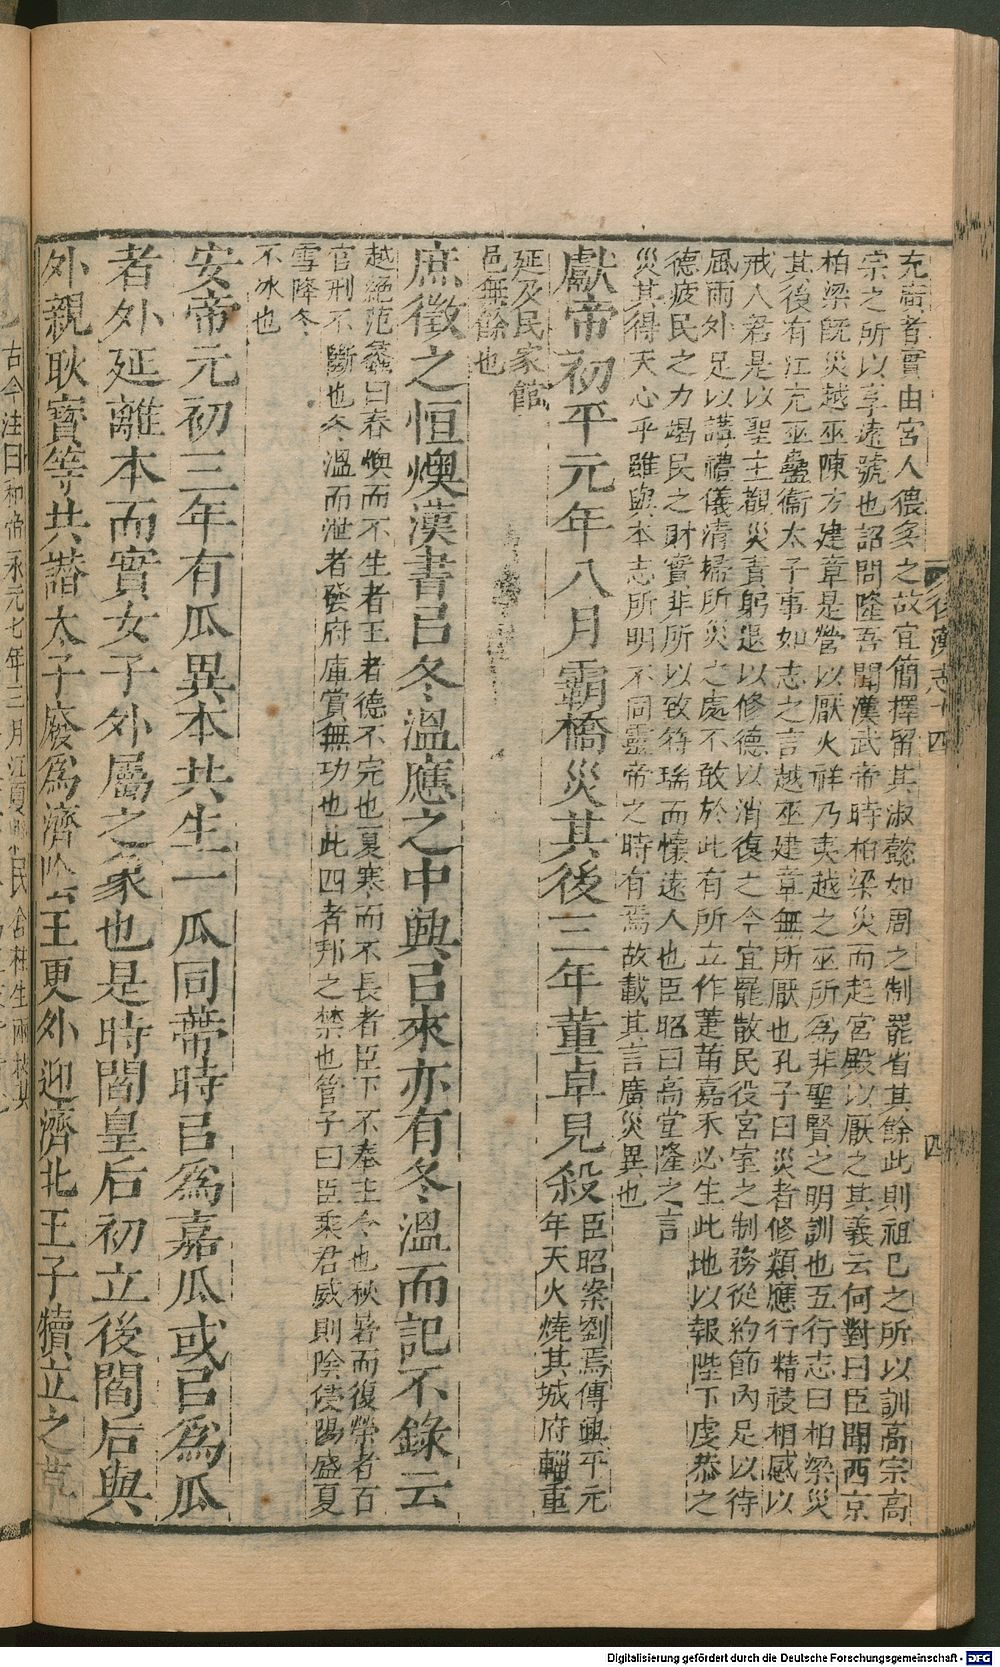 充讀者實由宮人偎多之故宜簡擇留其淑懿如周之制罷省其餘此則祖己之所以訓高宗高
宗之所以享遠號也詔問隆吾聞漢武帝時柏梁災而起宮殿以厭之其義云何對曰臣聞西京
柏梁旣災越巫陳方建章是營以厭火祥乃夷越之巫所爲非聖賢之明訓也五行志曰柏梁災
其後有江充巫蠱衞太子事如志之言越巫建章無所厭也孔子曰災者修類應行精祲相感以
戒人君是以聖主觀災責躬退以修德以消復之今宜罷散民役宮室之制務從約節內足以待
風雨外足以講禮儀清掃所災之處不敢於此有所立作萐莆嘉禾必生此地以報陛下虔恭之
德疲民之力竭民之財實非所以致符瑞而懷遠人也臣昭曰高堂隆之言
災其得天心乎雖與本志所明不同靈帝之時有焉故載其言廣災異也
獻帝初平元年八月霸橋災其後三年董卓見殺
臣昭案劉焉傳興平元
年天火燒其城府輜重
延及民家館
邑無餘也
庶徵之恒燠漢書㠯冬溫應之中興㠯來亦有冬溫而記不錄云
越絕范蠡曰春燠而不生者王者德不完也夏寒而不長者臣下不奉主令也秋暑而復榮者百
官刑不斷也冬溫而泄者發府庫賞無功也此四者邦之禁也管子曰臣乘君威則陰侵陽盛夏
雪降冬
不冰也
安帝元初三年有瓜異本共生一瓜同蔕時㠯爲嘉瓜或㠯爲瓜
者外延離本而實女子外屬之象也是時閻皇后初立後閻后與
外親耿寶等共譖太子廢爲濟陰王更外迎濟北王子犢立之草
後漢志十四
四
古今注曰和帝永元七年三月江夏縣民舍柱生兩枝其
Digitalisierung gefördert durch die Deutsche Forschungsgemeinschaft - DFG